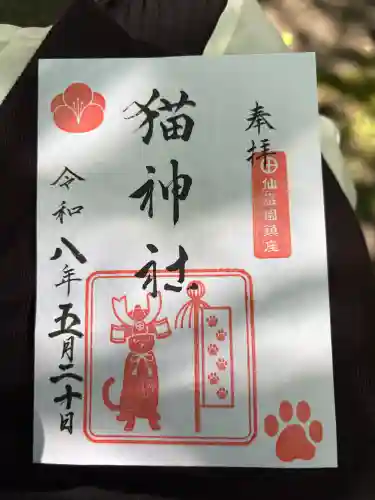 奉拝
仙巌園鎮座
猫神社
令和八年五月二十日